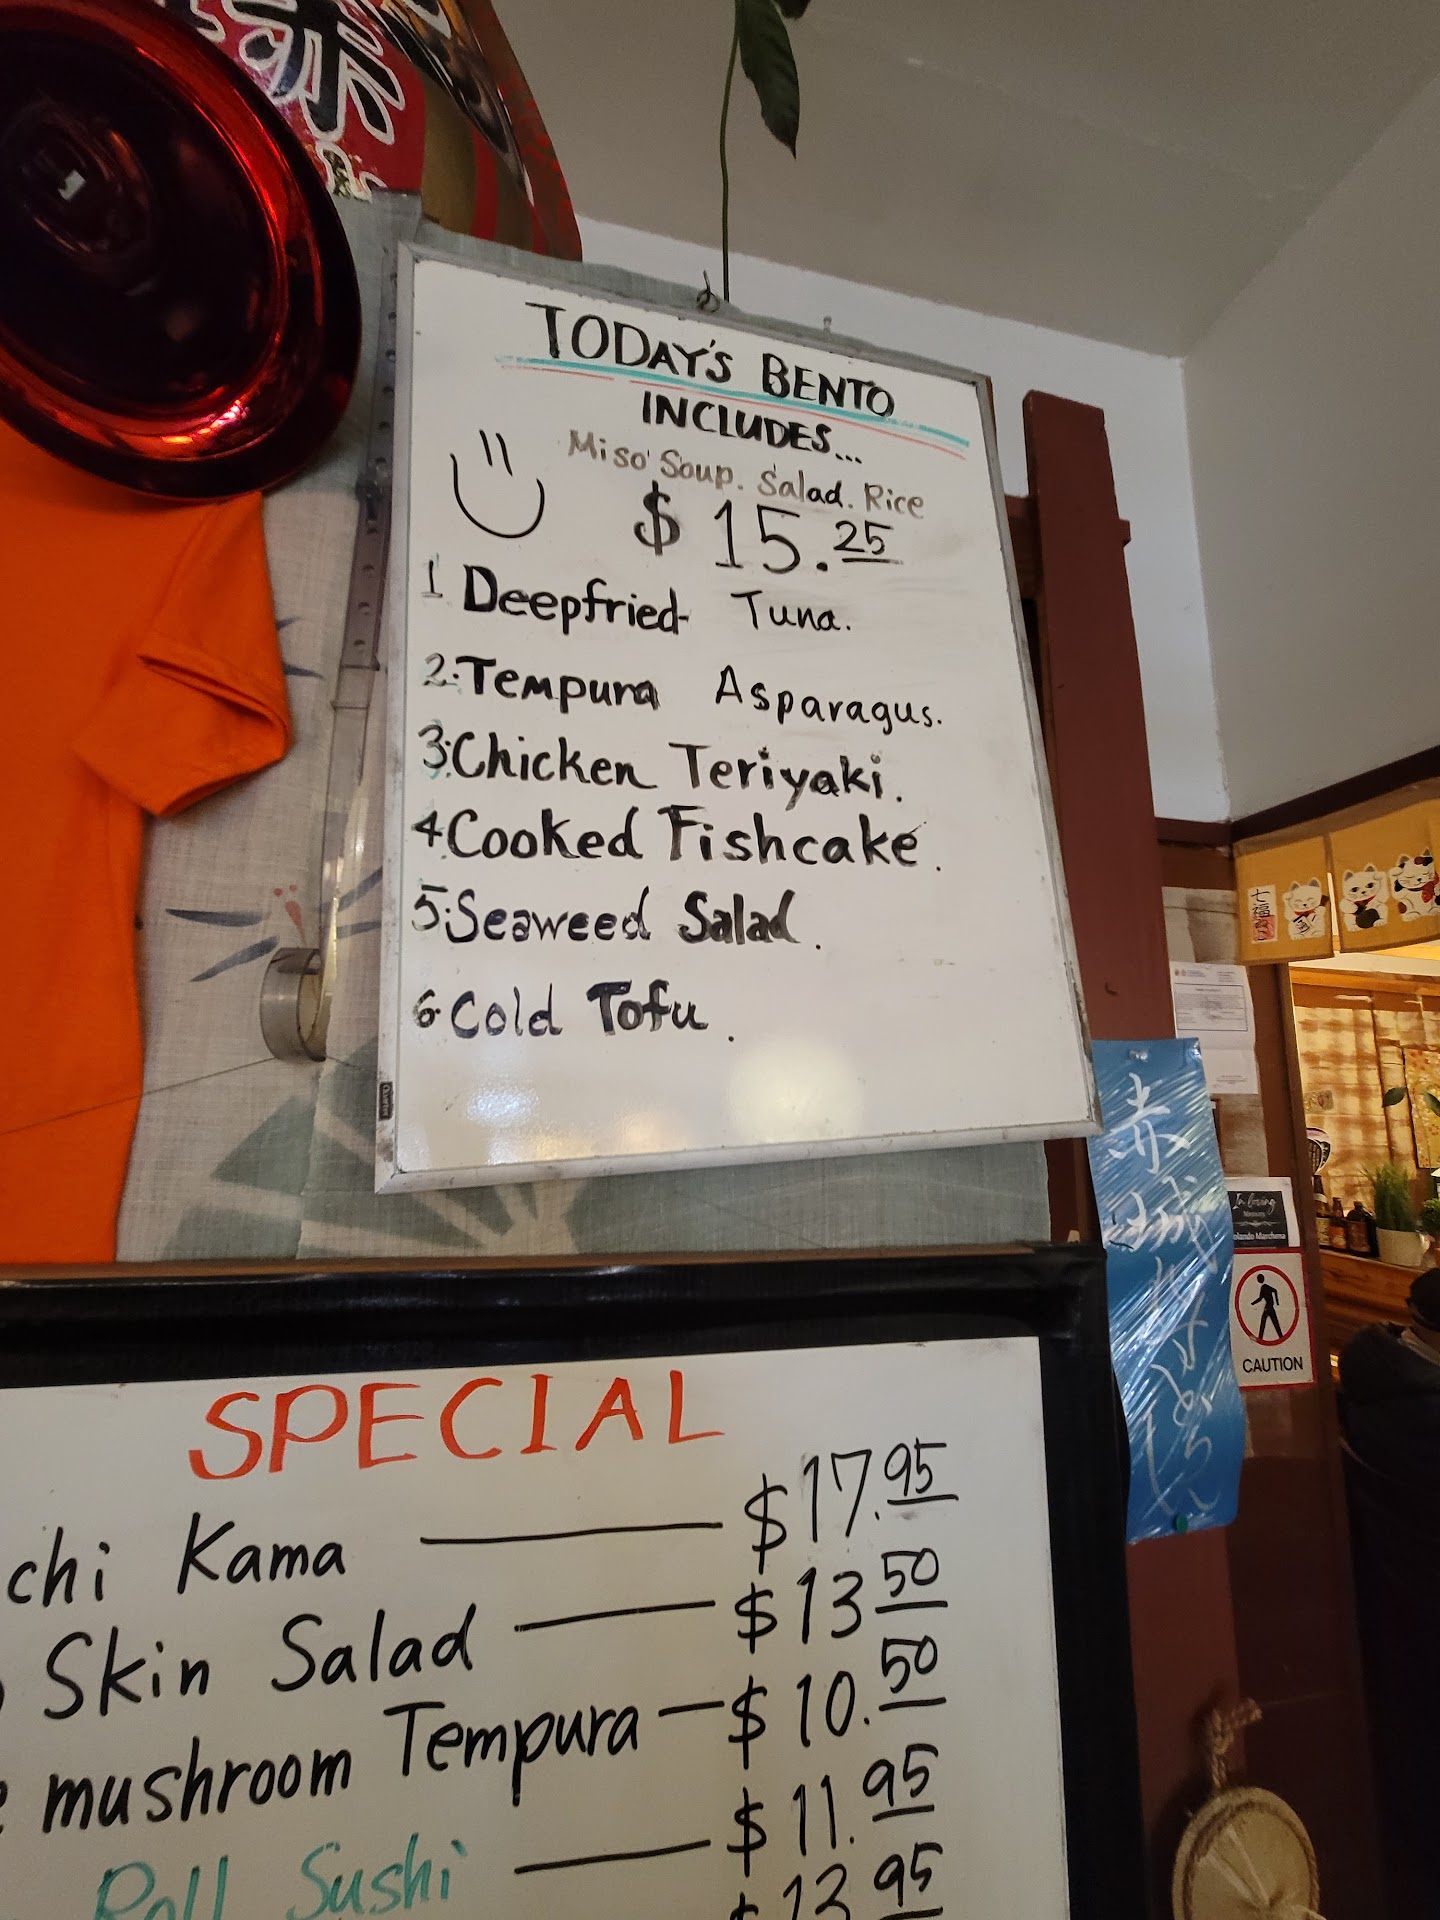 TODAY'S BENTO
INCLUDES...
Miso Soup. Salad. Rice
$15.25
1 Deepfried- Tuna.
2. Tempura Asparagus.
3. Chicken Teriyaki.
4 Cooked Fishcake.
5. Seaweed Salad.
6. Cold Tofu.
SPECIAL
chi Kama — $17.95
Skin Salad — $13 50
mushroom Tempura — $10.50
Roll Sushi — $11.95
$13 95
七福
赤城
In loving
Memory
olando Marchena
CAUTION
Quartet